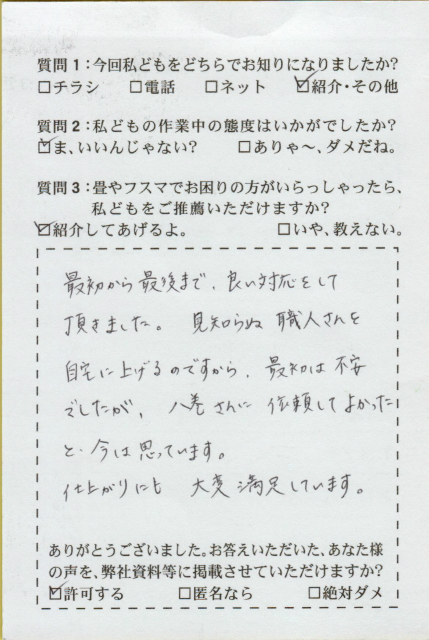 質問1:今回私どもをどちらでお知りになりましたか?
□チラシ □電話 □ネット ☑紹介・その他
質問2:私どもの作業中の態度はいかがでしたか?
☑ま、いいんじゃない? □ありゃ〜、ダメだね。
質問3:畳やフスマでお困りの方がいらっしゃったら、
私どもをご推薦いただけますか?
☑紹介してあげるよ。 □いや、教えない。
最初から最後まで、良い対応をして
頂きました。 見知らぬ 職人さんを
自宅に上げるのですから、最初は不安
でしたが、八巻さんに 依頼してよかった
と、今は思っています。
仕上がりにも 大変満足しています。
ありがとうございました。お答えいただいた、あなた様
の声を、弊社資料等に掲載させていただけますか?
☑許可する □匿名なら □絶対ダメ